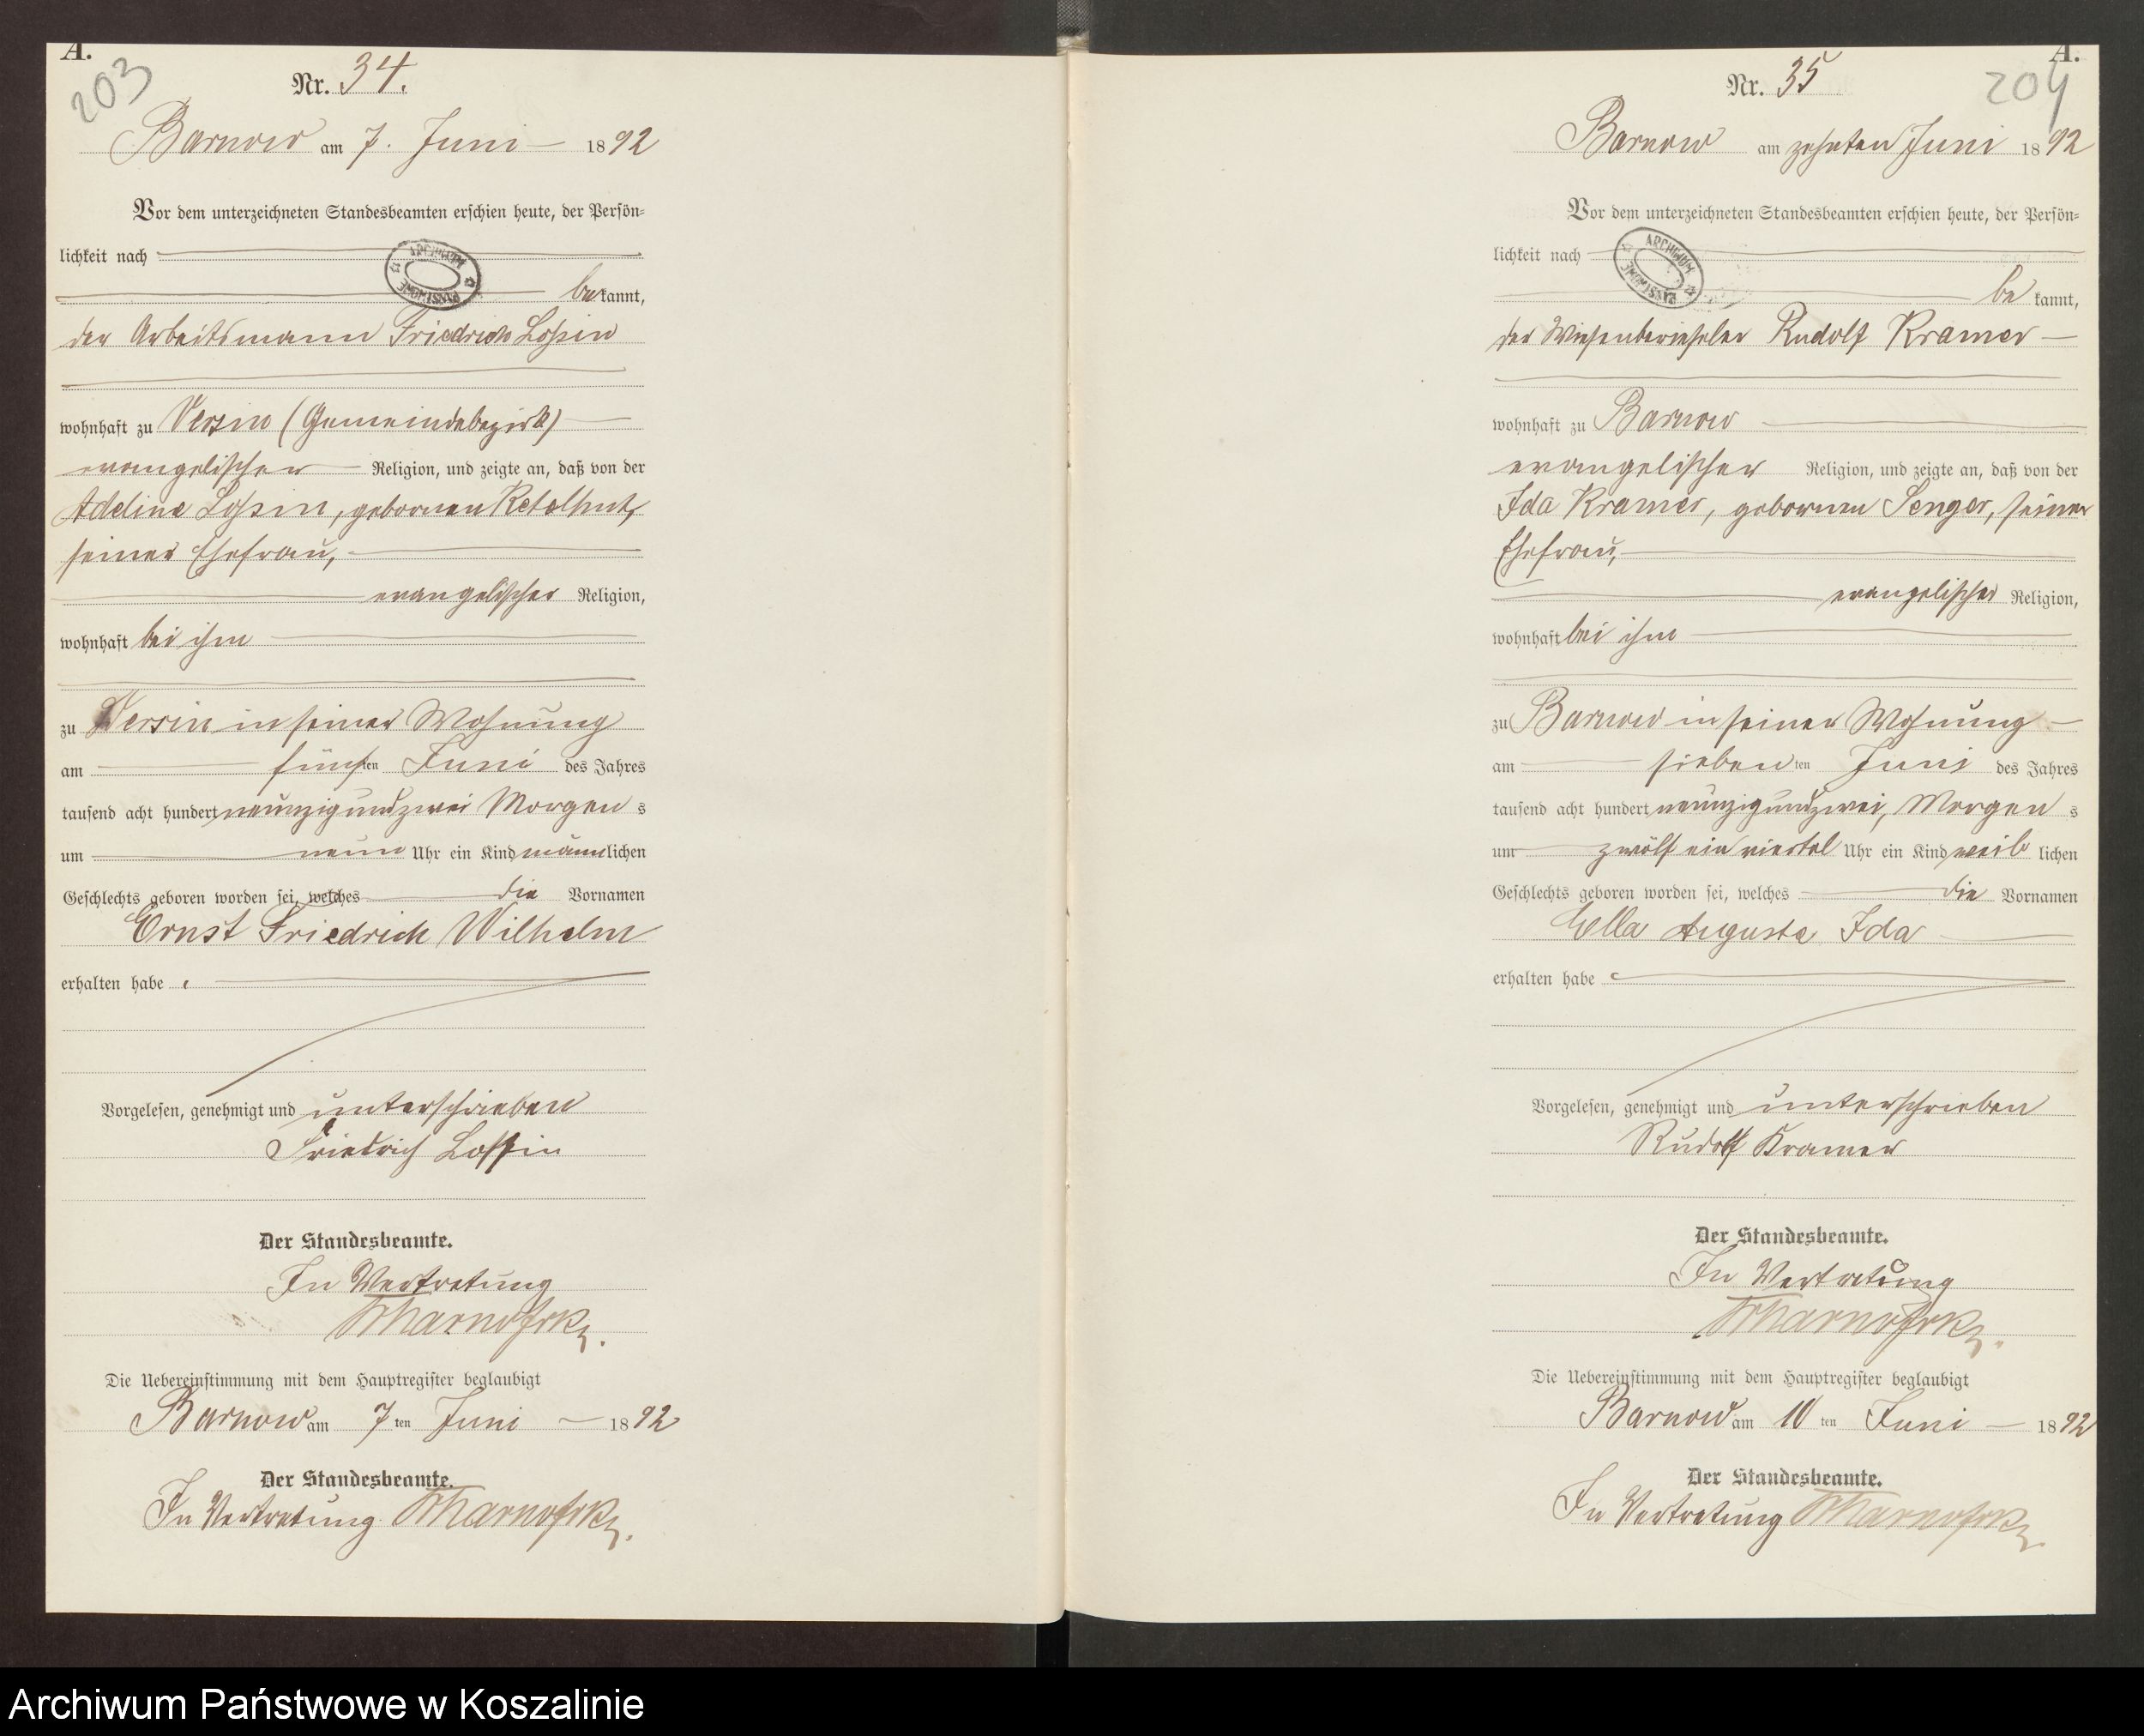 A.
203
Nr. 34.
Barnow am 7. Juni 1892
Vor dem unterzeichneten Standesbeamten erschien heute, der Persön=
lichkeit nach
bekannt,
der Arbeitsmann Friedrich Lossin
wohnhaft zu Versin (Gemeindebezirk)
evangelischer Religion, und zeigte an, daß von der
Adeline Lossin, gebornen
seiner Ehefrau,
evangelischer Religion,
wohnhaft bei ihm
zu Versin in seiner Wohnung
am fünften Juni des Jahres
tausend acht hundert neunzig und zwei Morgens
um neun Uhr ein Kind männlichen
Geschlechts geboren worden sei, welches die Vornamen
Ernst Friedrich Wilhelm
erhalten habe.
Vorgelesen, genehmigt und unterschrieben
Friedrich Lossin
Der Standesbeamte.
In Vertretung
Die Uebereinstimmung mit dem Hauptregister beglaubigt
Barnow am 7ten Juni 1892
Der Standesbeamte.
In Vertretung
A.
204
Nr. 35
Barnow am zehnten Juni 1892
Vor dem unterzeichneten Standesbeamten erschien heute, der Persön=
lichkeit nach
bekannt,
der Wiesenberiesler Rudolf Kramer
wohnhaft zu Barnow
evangelischer Religion, und zeigte an, daß von der
Ida Kramer, gebornen Senger, seiner
Ehefrau,
evangelischer Religion,
wohnhaft bei ihm
zu Barnow in seiner Wohnung
am siebenten Juni des Jahres
tausend acht hundert neunzig und zwei, Morgens
um zwölf ein viertel Uhr ein Kind weiblichen
Geschlechts geboren worden sei, welches die Vornamen
Ella Auguste Ida
erhalten habe
Vorgelesen, genehmigt und unterschrieben
Rudolf Kramer
Der Standesbeamte.
In Vertretung
Die Uebereinstimmung mit dem Hauptregister beglaubigt
Barnow am 10ten Juni 1892
Der Standesbeamte.
In Vertretung
Archiwum Państwowe w Koszalinie